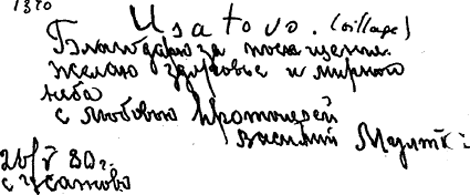 1320
Usatovo. (village)
Благодарю за посещение.
желаю здоровье и мирного
неба
с любовью Протоиерей
Василий
26/V 80 г.
с Усатово